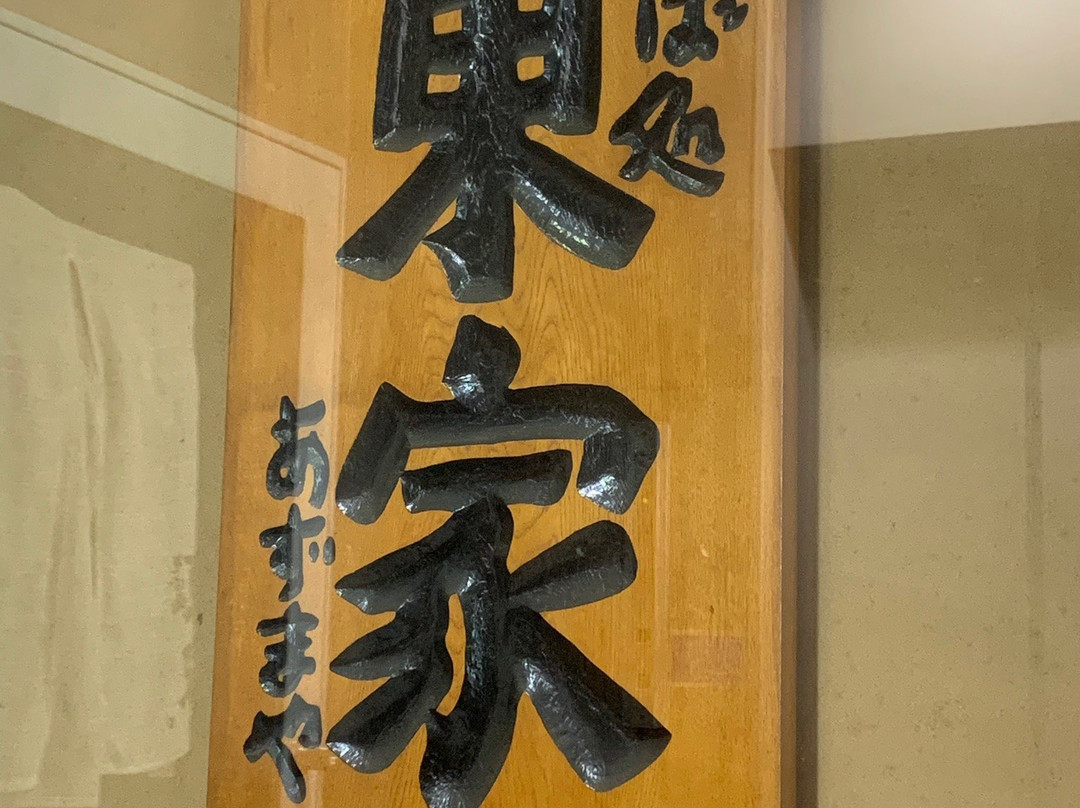 ば処
東家
あずまや